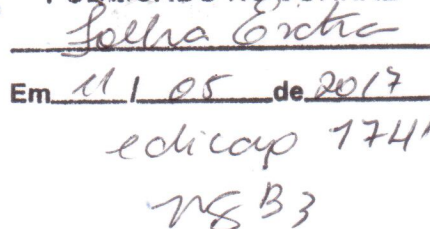 Folha Extra
Em 11 / 05 de 2017
edicao 174
pg B3